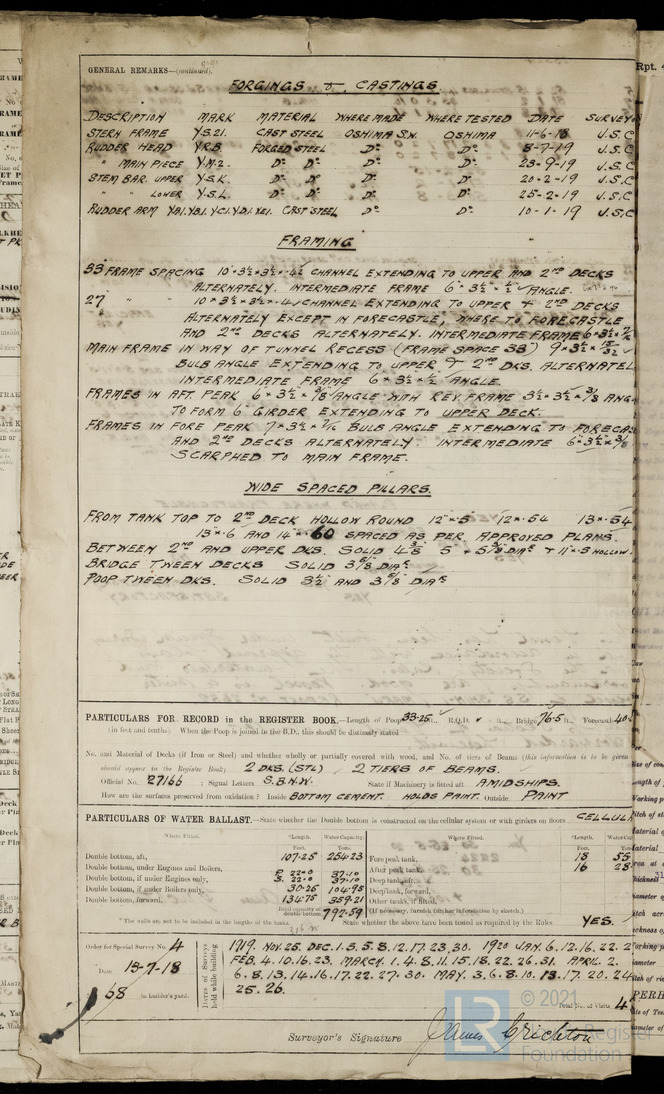 GENERAL REMARKS—(continued).
FORGINGS & CASTINGS.
DESCRIPTION MARK MATERIAL WHERE MADE WHERE TESTED DATE SURVEY
STERN FRAME Y.S.21. CAST STEEL OSHIMA S.W. OSHIMA 11-6-18 J.S.C
RUDDER HEAD Y.R.B. FORGED STEEL Do Do 8-7-19 J.S.C
" MAIN PIECE Y.M.2. Do Do Do Do 23-9-19 J.S.C
STEM BAR. UPPER Y.S.K. Do Do Do Do 20-2-19 J.S.C
" " LOWER Y.S.L. Do Do Do Do 25-2-19 J.S.C
RUDDER ARM YA1. YB1. YC1. YD1. YE1. CAST STEEL Do Do 10-1-19 J.S.C
FRAMING
33 FRAME SPACING 10" × 3½ × 3½ × .42 CHANNEL EXTENDING TO UPPER AND 2ND DECKS
ALTERNATELY. INTERMEDIATE FRAME 6" × 3½ × ½ ANGLE.
27 " " 10 × 3½ × 3½ CHANNEL EXTENDING TO UPPER + 2ND DECKS
ALTERNATELY EXCEPT IN FORECASTLE, WHERE TO FORECASTLE
AND 2ND DECKS ALTERNATELY. INTERMEDIATE FRAME 6 × 3½ ×
MAIN FRAME IN WAY OF TUNNEL RECESS (FRAME SPACE 33) 9 × 3½ × 15/32
BULB ANGLE EXTENDING TO UPPER & 2ND DKS. ALTERNATEL
INTERMEDIATE FRAME 6 × 3½ × ½ ANGLE.
FRAMES IN AFT. PEAK 6 × 3½ × 3/8 ANGLE WITH REV. FRAME 3½ × 3½ × 3/8 ANG
TO FORM 6" GIRDER EXTENDING TO UPPER DECK.
FRAMES IN FORE PEAK 7 × 3½ × 7/16 BULB ANGLE EXTENDING TO FORECAS
AND 2ND DECKS ALTERNATELY. INTERMEDIATE 6 × 3½ × 3/8
SCARPHED TO MAIN FRAME.
WIDE SPACED PILLARS.
FROM TANK TOP TO 2ND DECK HOLLOW ROUND 12" × .5 12 × .54 13 × .54
13 × .6 AND 14" × .60 SPACED AS PER APPROVED PLANS.
BETWEEN 2ND AND UPPER DKS. SOLID 4 3/8 5 + 5 1/8 DIAR + 11 × .5 HOLLOW.
BRIDGE TWEEN DECKS SOLID 3 5/8 DIAR
POOP TWEEN DKS. SOLID 3½ AND 3 5/8 DIAR
PARTICULARS FOR RECORD in the REGISTER BOOK.—Length of Poop 33.25 ft., R.Q.D. ft., Bridge 76.5 ft., Forecastle 40
(in feet and tenths). When the Poop is joined to the B.D., this should be distinctly stated
No. and Material of Decks (if Iron or Steel) and whether wholly or partially covered with wood, and No. of tiers of Beams (this information is to be given
should appear to the Register Book) 2 DKS. (STL) , 2 TIERS OF BEAMS.
Official No. 27166 ; Signal Letters S.B.N.W. State if Machinery is fitted aft AMIDSHIPS.
How are the surfaces preserved from oxidation? Inside BOTTOM CEMENT. HOLDS PAINT. Outside PAINT
PARTICULARS OF WATER BALLAST.—State whether the Double bottom is constructed on the cellular system or with girders on floors CELLULA
Where Fitted. *Length. Water Capacity. Where Fitted. *Length. Water Cap
Feet. Tons. Feet. Tons
Double bottom, aft, 107.25 254.23 Fore peak tank, 18 55
Double bottom, under Engines and Boilers, After peak tank, 16 28
Double bottom, if under Engines only, 22.0 37.10 Deep tank, aft,
Double bottom, if under Boilers only, 30.25 104.95 Deep tank, forward,
Double bottom, forward, 134.75 359.21 Other tanks, if fitted,
Total capacity of double bottom 792.59 (If necessary, furnish further information by sketch.)
* The wells are not to be included in the lengths of the tanks. State whether the above have been tested as required by the Rules YES.
Order for Special Survey No. 4
Date 13-7-18
68 in builder's yard.
Dates of Surveys held while building
1919. NOV. 25. DEC. 1. 3. 5. 8. 12. 17. 23. 30. 1920 JAN. 6. 12. 16. 22. 2
FEB. 4. 10. 16. 23. MARCH. 1. 4. 8. 11. 15. 18. 22. 26. 31. APRIL. 2.
6. 8. 13. 14. 16. 17. 22. 27. 30. MAY. 3. 6. 8. 10. 13. 17. 20. 24
25. 26.
Total No. of Visits 4
Surveyor's Signature James Crichton
© 2021
LR Lloyd's Register
Foundation